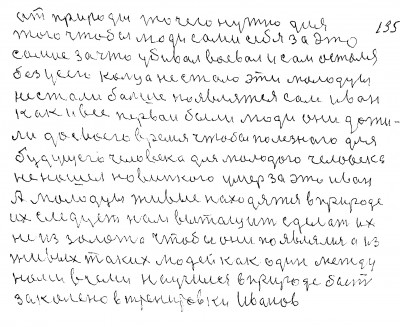 от природы то чего нужно для 195
того чтобы люди сами себя за это
самые за что убивал воевал и сам остался
без усего конца не стало эти молодцы
не стали больше появлятся сам иван
как и все первои были люди они дожи-
ли до своего время чтобы полезного для
будущего человека для молодого человека
не нашел новинкого умер за это иван
А молодцы живые находятся в природе
их следует нам вытащит сделат их
не из золота чтобы они появлялис а из
живых таких людей как один между
нами всеми научился в природе быт
закалено в тренировки Иванов